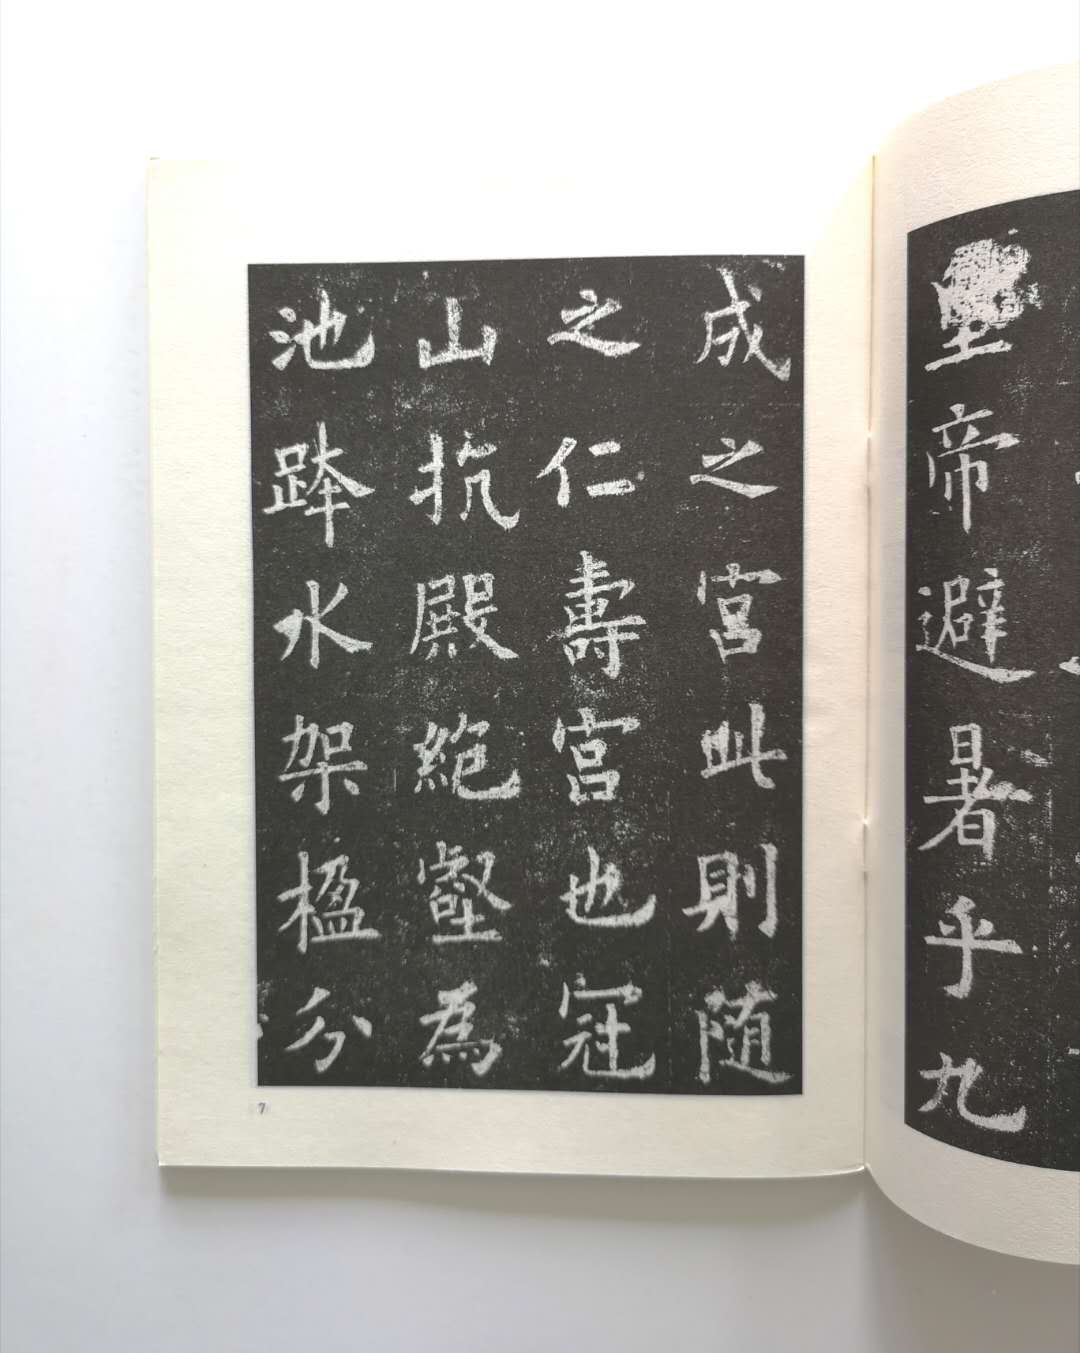 皇帝避暑乎九
成之宮此則随
之仁壽宮也冠
山抗殿絶壑為
池跨水架楹分
7